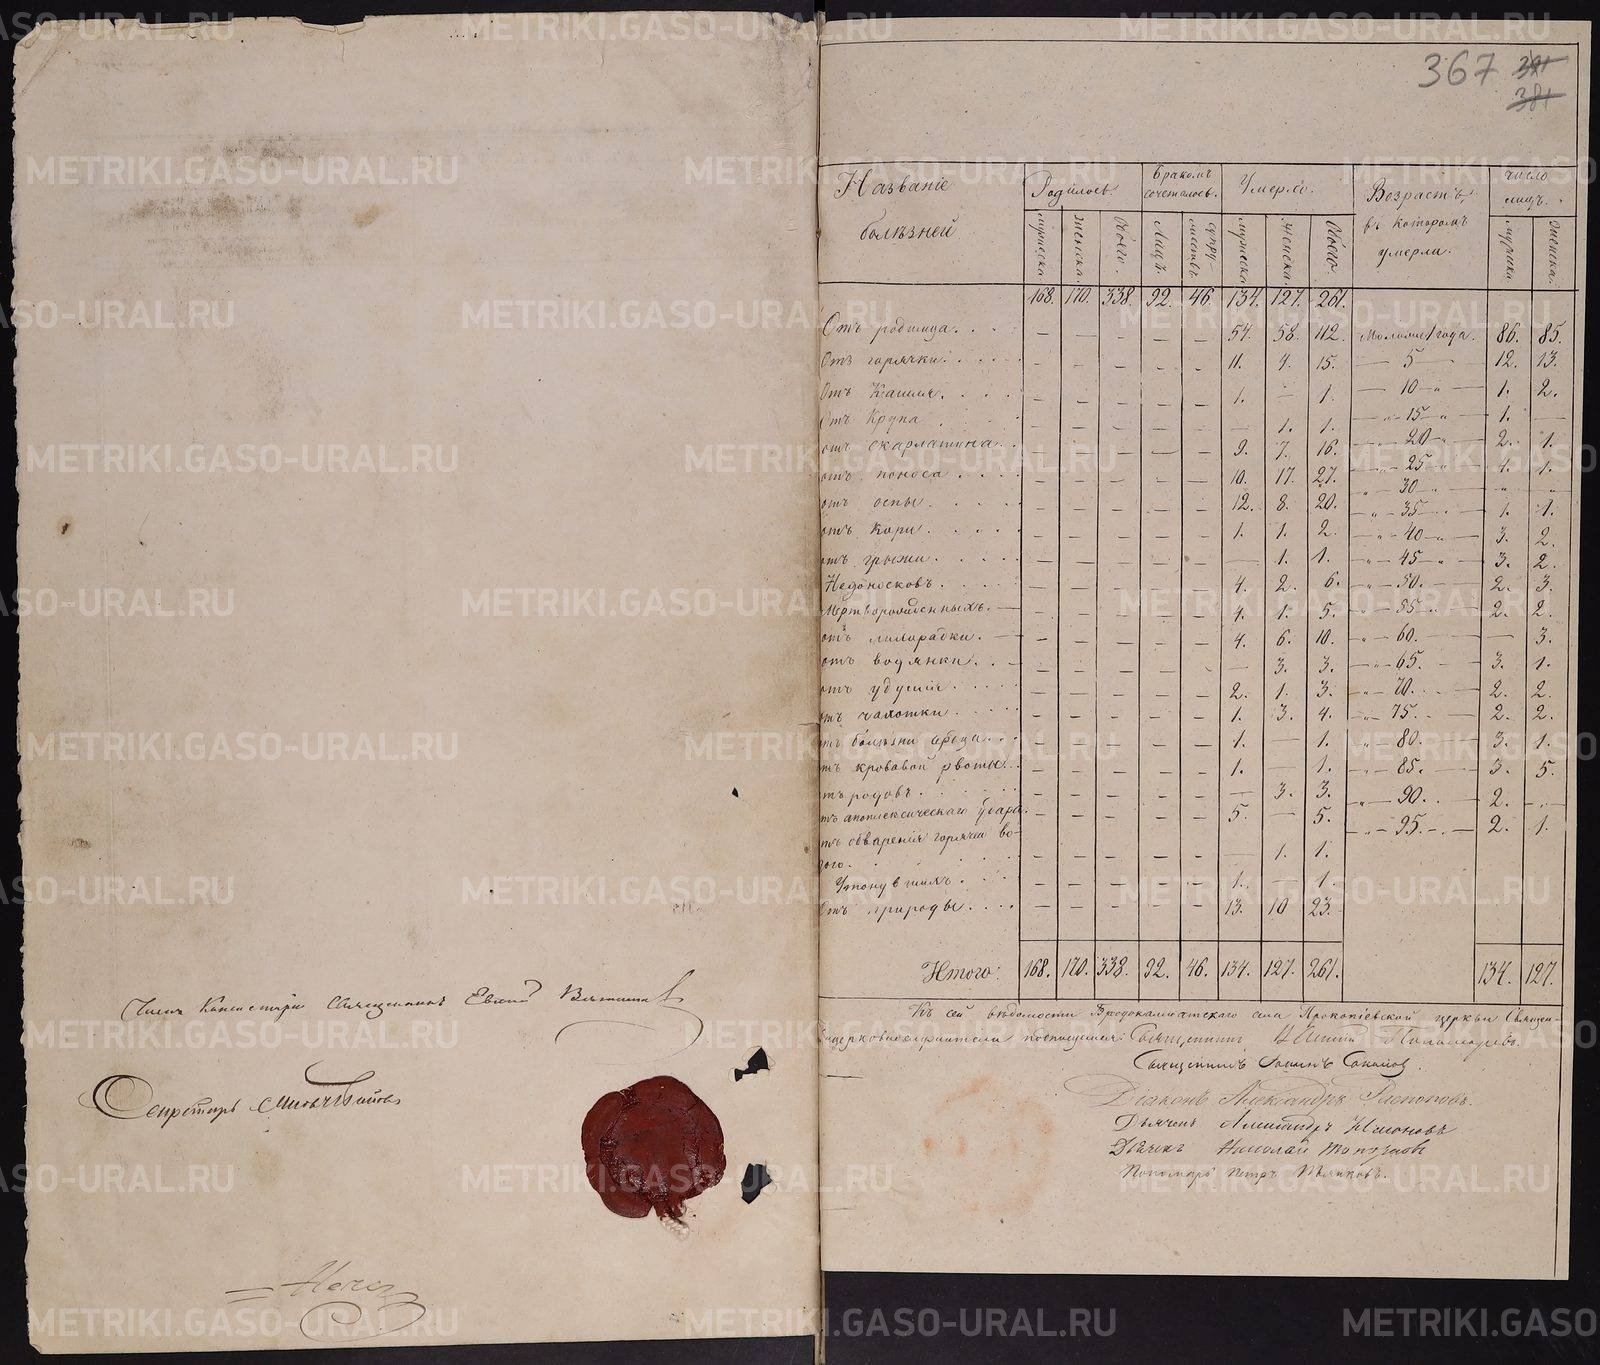 Членъ Консисторіи Священникъ
Секретарь
367
381
Названіе болѣзней
Родилось.
Бракомъ сочеталось.
Умерло.
Возрастъ, въ которомъ умерли.
Число лицъ.
мужеска женска Обоего. Лицъ. супружествъ. мужеска женска Обоего. мужеска женска
168. 170. 338. 92. 46. 134. 127. 261.
Отъ родимца. — — — — — 54. 58. 112. Моложе 1 года. 86. 85.
Отъ горячки. — — — — — 11. 4. 15. — 5 — 12. 13.
Отъ Кашля. — — — — — 1. — 1. — 10 „ — 1. 2.
Отъ Крупа — — — — — — 1. 1. — „ 15 „ — 1. —
отъ скарлатина. — — — — — 9. 7. 16. — „ 20 „ — 2. 1.
отъ поноса — — — — — 10. 17. 27. — „ 25 „ — 1. 1.
отъ оспы. — — — — — 12. 8. 20. „ — 30 „ — „ „
отъ Кори. — — — — — 1. 1. 2. „ — 35 — 1. 1.
отъ грыжи. — — — — — — 1. 1. — „ — 40 — „ — 3. 2.
Недоносковъ. — — — — — 4. 2. 6. „ — 45 — „ — 3. 2.
Мертворожденныхъ. — — — — — 4. 1. 5. „ — 50. — 2. 3.
отъ лихорадки. — — — — — 4. 6. 10. „ — 55 „ — 2. 2.
отъ водянки. — — — — — — 3. 3. „ — 60. — — 3.
отъ удушія — — — — — 2. 1. 3. — „ — 65. — 3. 1.
отъ чахотки — — — — — 1. 3. 4. „ — 70. — 2. 2.
отъ болѣзни сердца — — — — — 1. — 1. — „ — 75. — 2. 2.
отъ кровавой рвоты — — — — — 1. — 1. „ — 80. — 3. 1.
отъ родовъ. — — — — — — 3. 3. „ — 85. — 3. 5.
отъ апоплексическаго удара — — — — — 5. — 5. „ — 90. — 2. —
отъ обваренія горячей водою. — — — — — — 1. 1. — „ — 95. — „ — 2. 1.
Утонувшихъ. — — — — — 1. — 1.
Отъ природы. — — — — — 13. 10 23.
Итого: 168. 170. 338. 92. 46. 134. 127. 261. 134. 127.
Къ сей вѣдомости Бродокалмакского села Прокопіевской церкви Священ-
ноцерковнослужители подписуемся: Священникъ Пономаревъ.
Священникъ Іоаннъ
Діаконъ Александръ
Дьячекъ Александръ
Дьячекъ Николай
Пономарь Петръ
METRIKI.GASO-URAL.RU